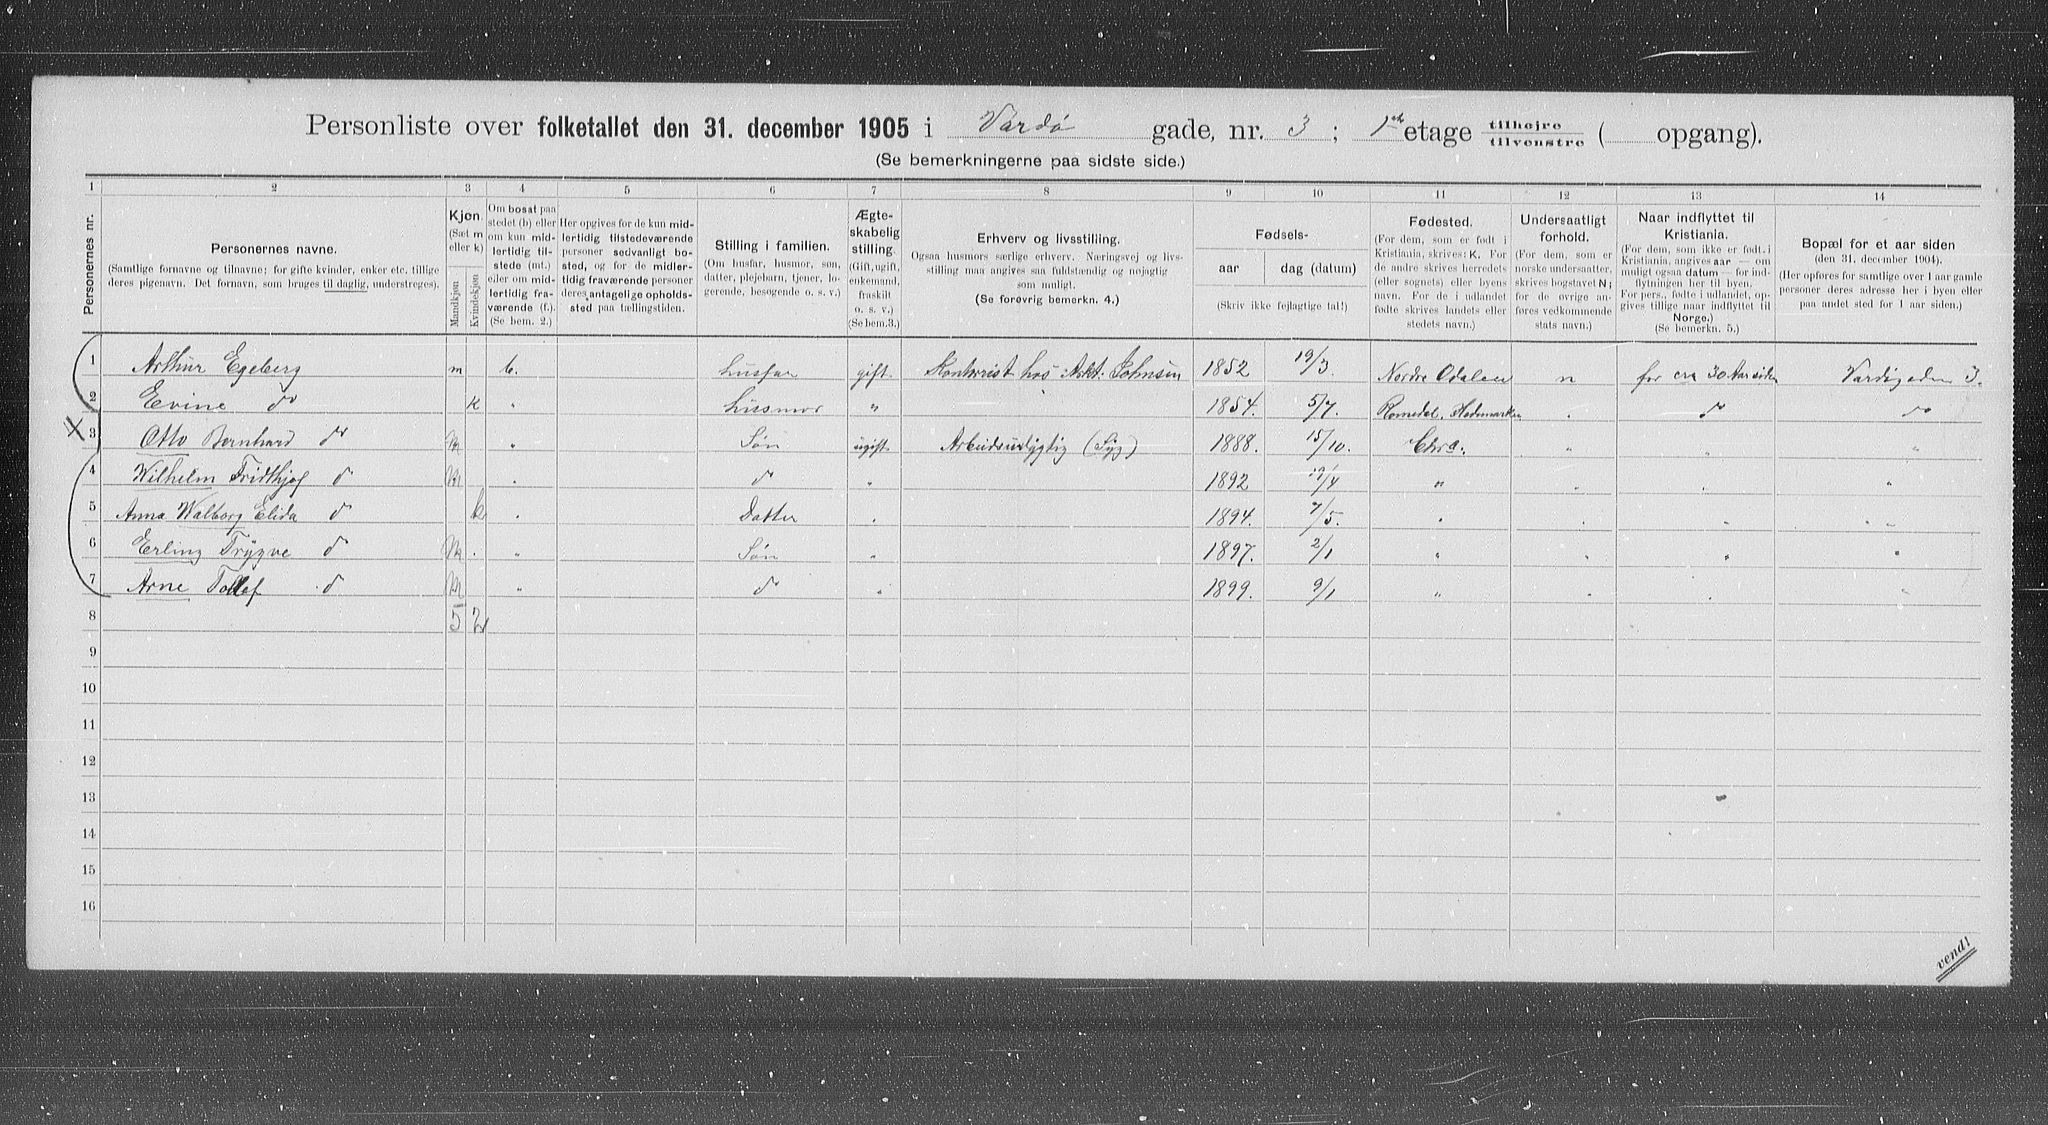 Personliste over folketallet den 31. december 1905 i Vardø gade, nr. 3; 1ste etage tilhøjre / tilvenstre ( opgang).
(Se bemerkningerne paa sidste side.)
1 2 3 4 5 6 7 8 9 10 11 12 13 14
Personernes nr.
Personernes navne.
(Samtlige fornavne og tilnavne; for gifte kvinder, enker etc. tillige
deres pigenavn. Det fornavn, som bruges til daglig, understreges).
Kjøn.
(Sæt m
eller k)
Mandkjøn
Kvindekjøn
Om bosat paa
stedet (b) eller
om kun mid-
lertidig til-
stede (mt.)
eller om mid-
lertidig fra-
værende (f.).
(Se bem. 2.)
Her opgives for de kun mid-
lertidig tilstedeværende
personer sedvanligt bo-
sted, og for de midler-
tidig fraværende personer
deres antagelige opholds-
sted paa tællingstiden.
Stilling i familien.
(Om husfar, husmor, søn,
datter, plejebarn, tjener, lo-
gerende, besøgende o. s. v.)
Ægte-
skabelig
stilling.
(Gift, ugift,
enkemand,
fraskilt
o. s. v.)
(Se bem.3.)
Erhverv og livsstilling.
Ogsaa husmors særlige erhverv. Næringsvej og livs-
stilling maa angives saa fuldstændig og nøjagtig
som muligt.
(Se forøvrig bemerkn. 4.)
Fødsels-
aar
dag (datum)
(Skriv ikke fejlagtige tal!)
Fødested.
(For dem, som er født i
Kristiania, skrives: K. For
de andre skrives herredets
(eller sognets) eller byens
navn. For de i udlandet
fødte skrives landets eller
stedets navn.)
Undersaatligt
forhold.
(For dem, som er
norske undersaatter,
skrives bogstavet N;
for de øvrige an-
føres vedkommende
stats navn.)
Naar indflyttet til
Kristiania.
(For dem, som ikke er født i
Kristiania, angives aar — om
muligt ogsaa datum — for ind-
flytningen her til byen.
For pers., fødte i udlandet, op-
gives tillige naar indflyttet til
Norge.)
(Se bemerkn. 5.)
Bopæl for et aar siden
(den 31. december 1904).
(Her opføres for samtlige over 1 aar gamle
personer deres adresse her i byen eller
paa andet sted for 1 aar siden.)
1 Arthur Egeberg m b. husfar gift Kontorist hos Arkt. Johnsen 1852 19/3. Nordre Odalen n for ca 30 Aar siden Vardøgaden 3.
2 Evine do k " husmor " 1854. 5/7. Romedal, Hedemarken " do do
X 3 Otto Bernhard do m " Søn ugift Arbeidsudygtig (Syg) 1888. 15/10. Chra. " " "
4 Wilhelm Fridthjof d m " d " 1892 12/4 " " " "
5 Anna Walborg Elida d k " Datter " 1894. 7/5. " " " "
6 Erling Trygve d m " Søn " 1897. 2/1 " " " "
7 Arne Tollef d m " d " 1899. 9/1 " " " "
8 5 2
9
10
11
12
13
14
15
16
vend!